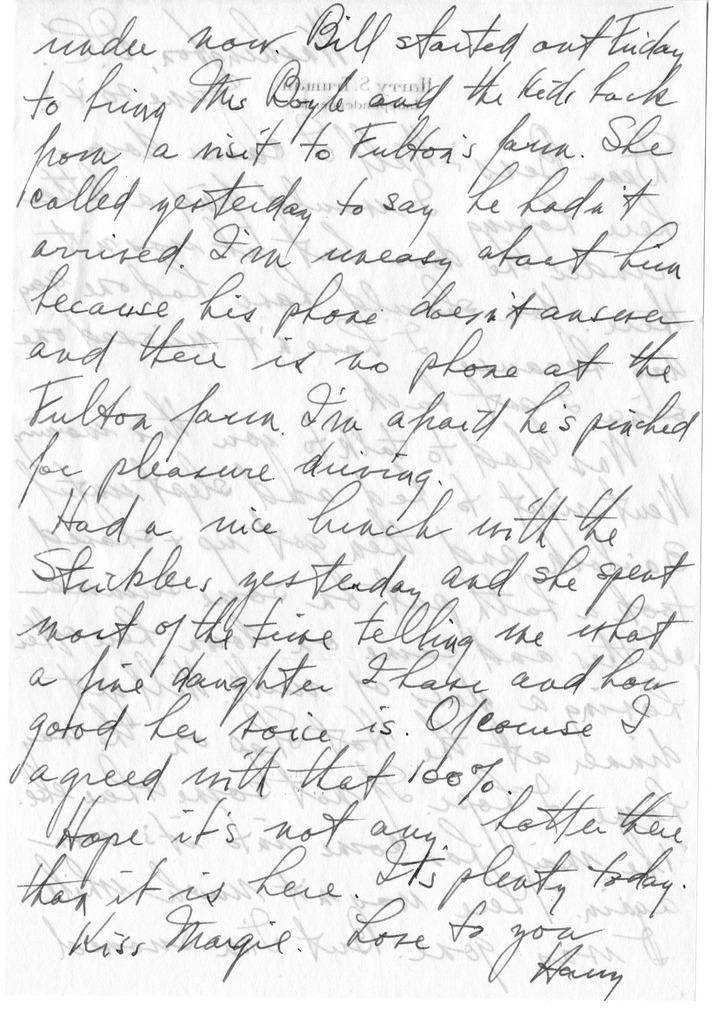 under now. Bill started out Friday
to bring Mrs Boyle and the kids back
from a visit to Fulton's farm. She
called yesterday to say he hadn't
arrived. I'm uneasy about him
because his phone doesn't answer
and there is no phone at the
Fulton farm. I'm afraid he's pinched
for pleasure driving.
Had a nice lunch with the
Stricklers yesterday and she spent
most of the time telling me what
a fine daughter I have and how
good her voice is. Of course I
agreed with that 100%.
Hope it's not any hotter there
than it is here. It's plenty today.
Kiss Margie. Love to you
Harry